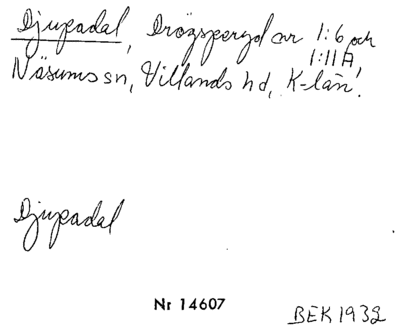 Djupadal, Drögsperyd nr 1:6 och
1:11A,
Näsums sn, Villands hd, K-län.
Djupadal
Nr 14607
BEK 1932